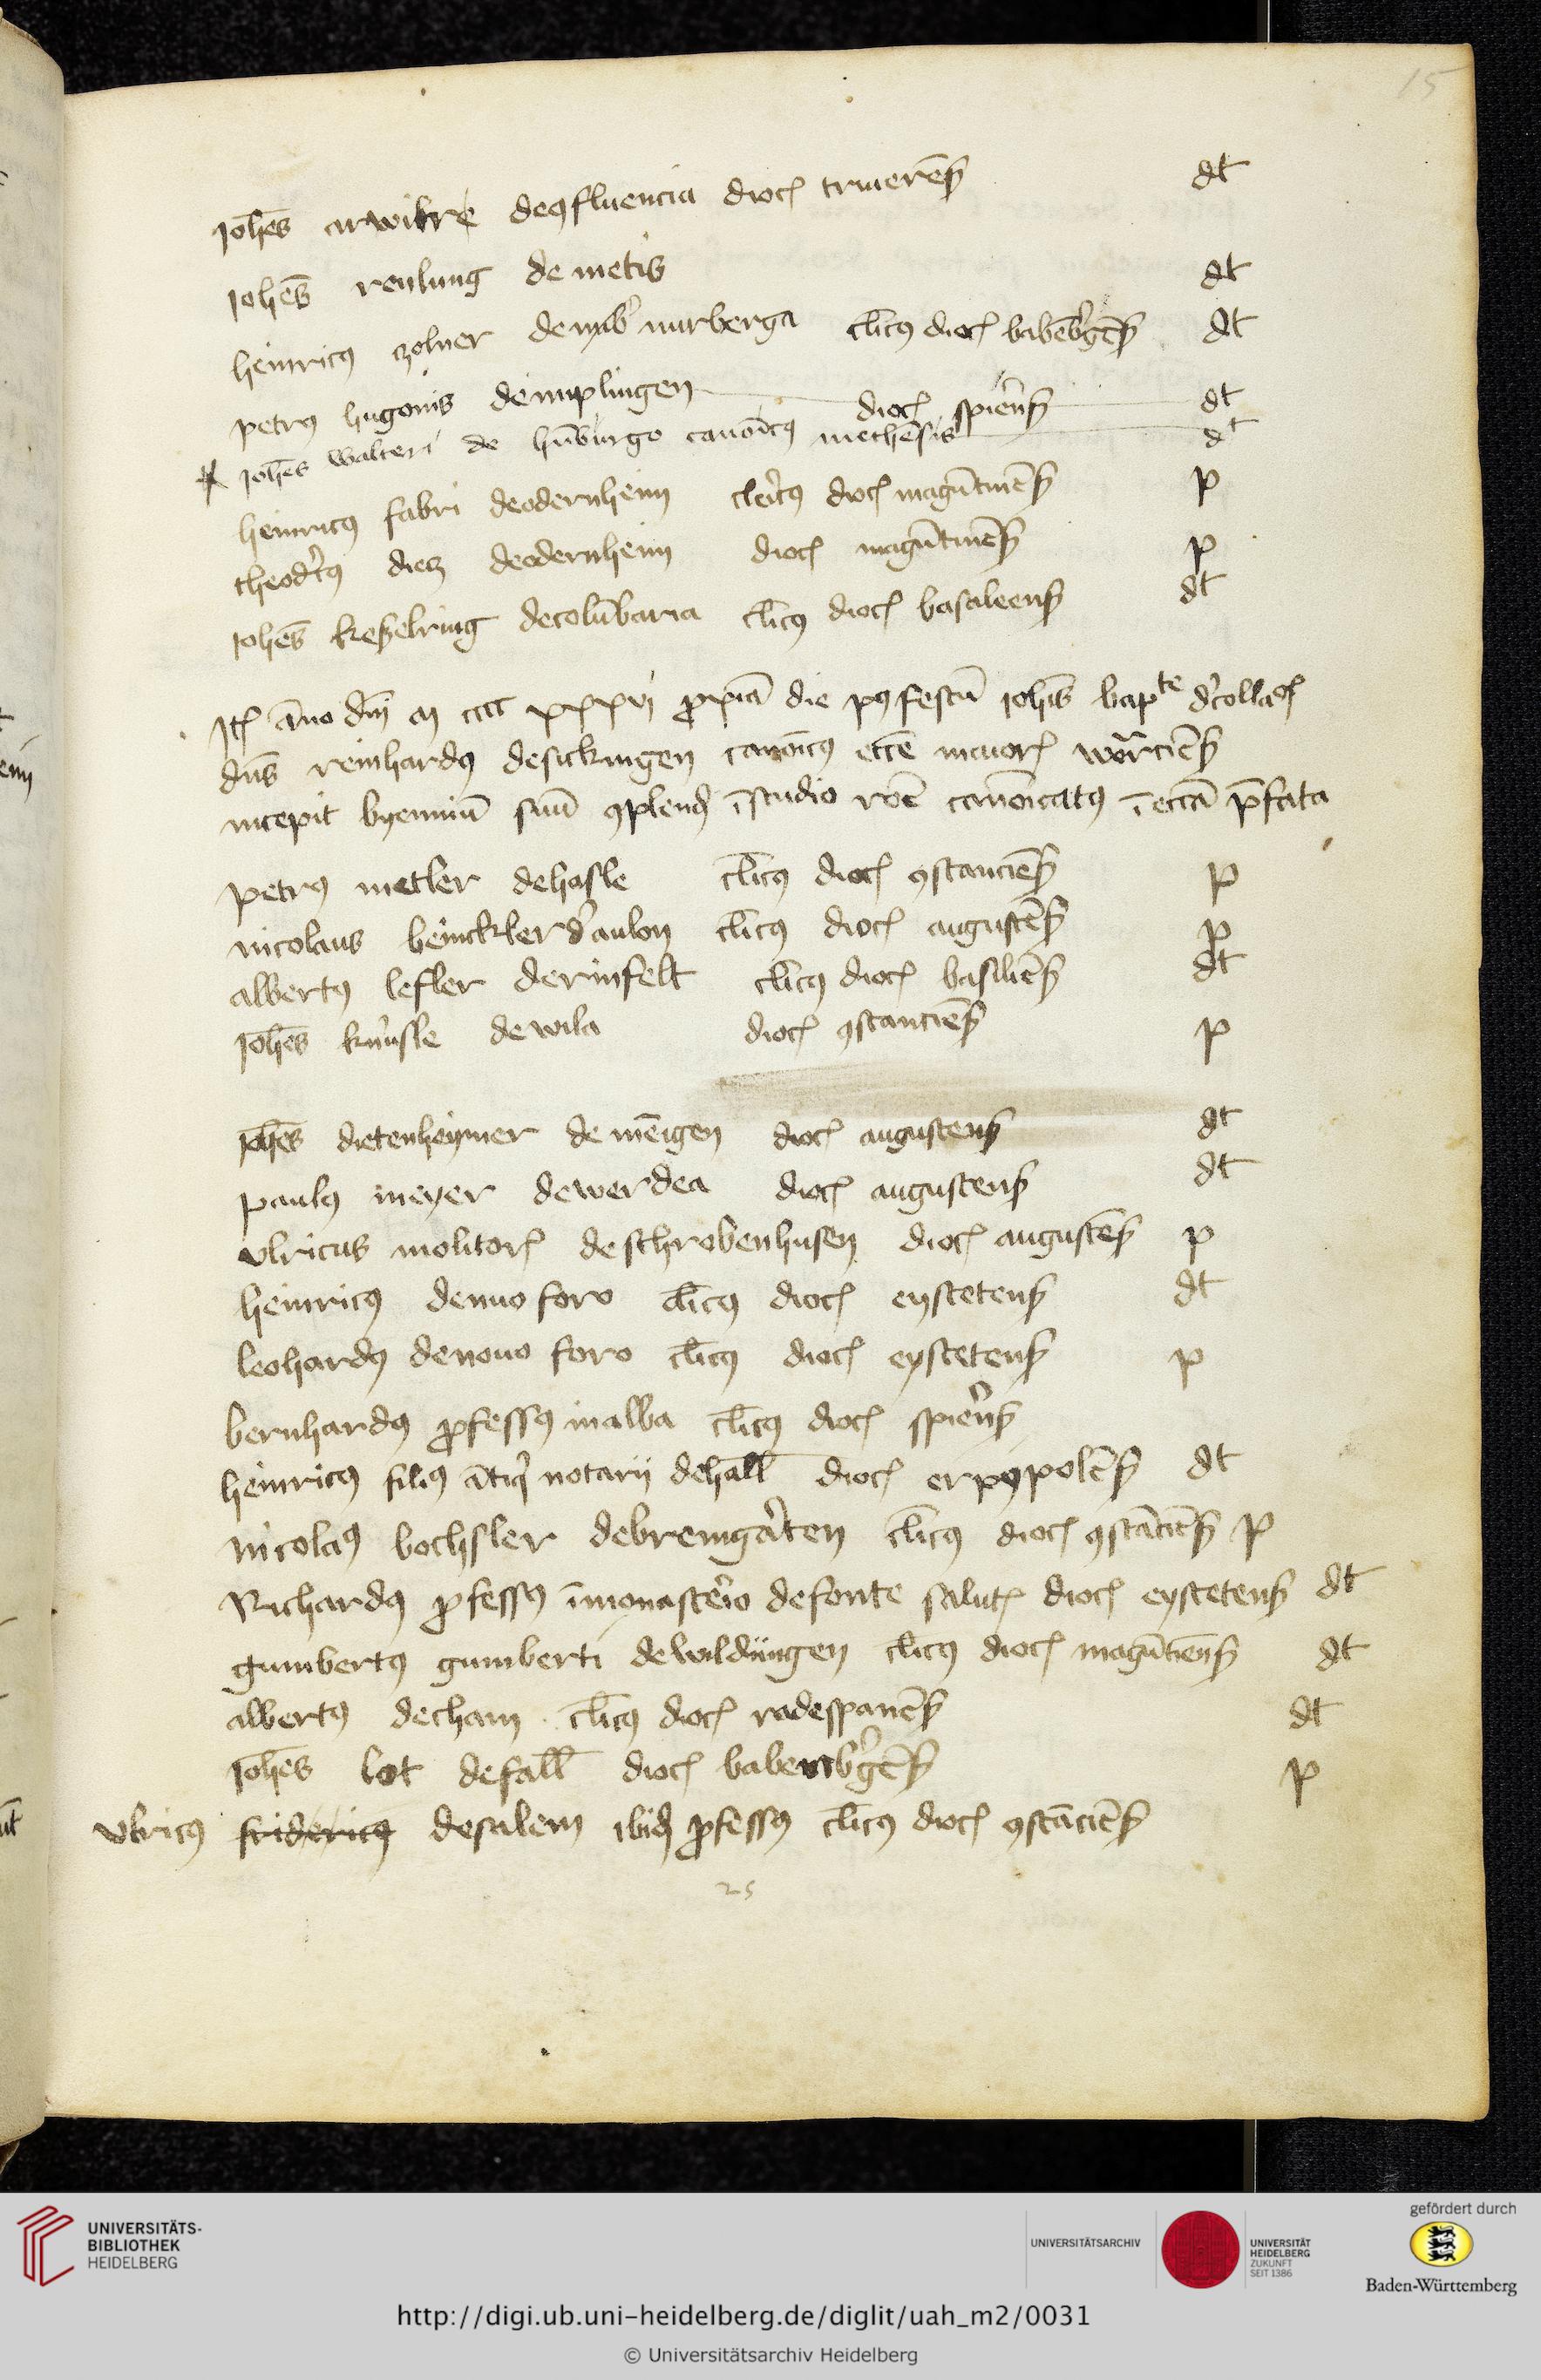 15
Joh̄es arwilre deꝯfluencia dioc̄ triuereñ dt
Joh̄es renlung de metis dt
heinricꝰ zolner de nurberga cl̄icꝰ dioc̄ babēbgēn dt
petrꝰ hugonis deimplingen dioc̄ spireñ dt
Joh̄es walteri de hūburgo canōicꝰ methēsis dt
heinricꝰ fabri deodernheim clericꝰ dioc̄ magūtineñ p
theodricꝰ diez deodernheim dioc̄ magūtineñ p
Joh̄es keßelring decolūbaria cl̄icꝰ dioc̄ basaleenß dt
Itē āno dn̄i m cccc xxxvi proximā die pꝰ festū Joh̄is bapte decollac̄
dn̄s reinhardꝰ desickingen canōicꝰ eccē maiorē
incepit byenniū suū ꝯplend̄ ī studio rōe canōicatꝰ ī eccā p̄fata
petrꝰ metler dehasle cl̄icꝰ dioc̄ ꝯstancieñ p
nicolaus beinckler daulon cl̄icꝰ dioc̄ augusteñ p
albertꝰ lefler derinfelt cl̄icꝰ dioc̄ basilieñ dt
Joh̄es knusle dewila dioc̄ ꝯstancieñ p
Joh̄es dietenheymer de mēigen dioc̄ augustenß dt
paulꝰ meyer dewerdea dioc̄ augustenß dt
vlricus molitorꝭ deschrobenhusen dioc̄ augusteñ p
heinricꝰ denuo foro cl̄icꝰ dioc̄ eystetenß dt
leohardꝰ denouo foro cl̄icꝰ dioc̄ eystetenß p
bernhardꝰ ꝓfessꝰ inalba cl̄icꝰ dioc̄ spireñ
heinricꝰ filiꝰ ātiqi notarij dehall dioc̄ erpipoleñ dt
nicolaꝰ bochsler debremgarten cl̄icꝰ dioc̄ ꝯstācieñ p
Richardꝰ ꝓfessꝰ īmonasterio defonte salutꝭ dioc̄ eystetenß dt
gumbertꝰ gumberti dewildungen cl̄icꝰ dioc̄ magūtieñ dt
albertꝰ decham cl̄icꝰ dioc̄ radespaneñ dt
Joh̄es lot defall dioc̄ babenbgēn p
vlricꝰ fridericꝰ desalem ibid̄ ꝓfessꝰ cl̄icꝰ dioc̄ ꝯstācieñ
25
UNIVERSITÄTS-
BIBLIOTHEK
HEIDELBERG
UNIVERSITÄTSARCHIV
UNIVERSITÄT
HEIDELBERG
ZUKUNFT
SEIT 1386
gefördert durch
Baden-Württemberg
http://digi.ub.uni-heidelberg.de/diglit/uah_m2/0031
© Universitätsarchiv Heidelberg